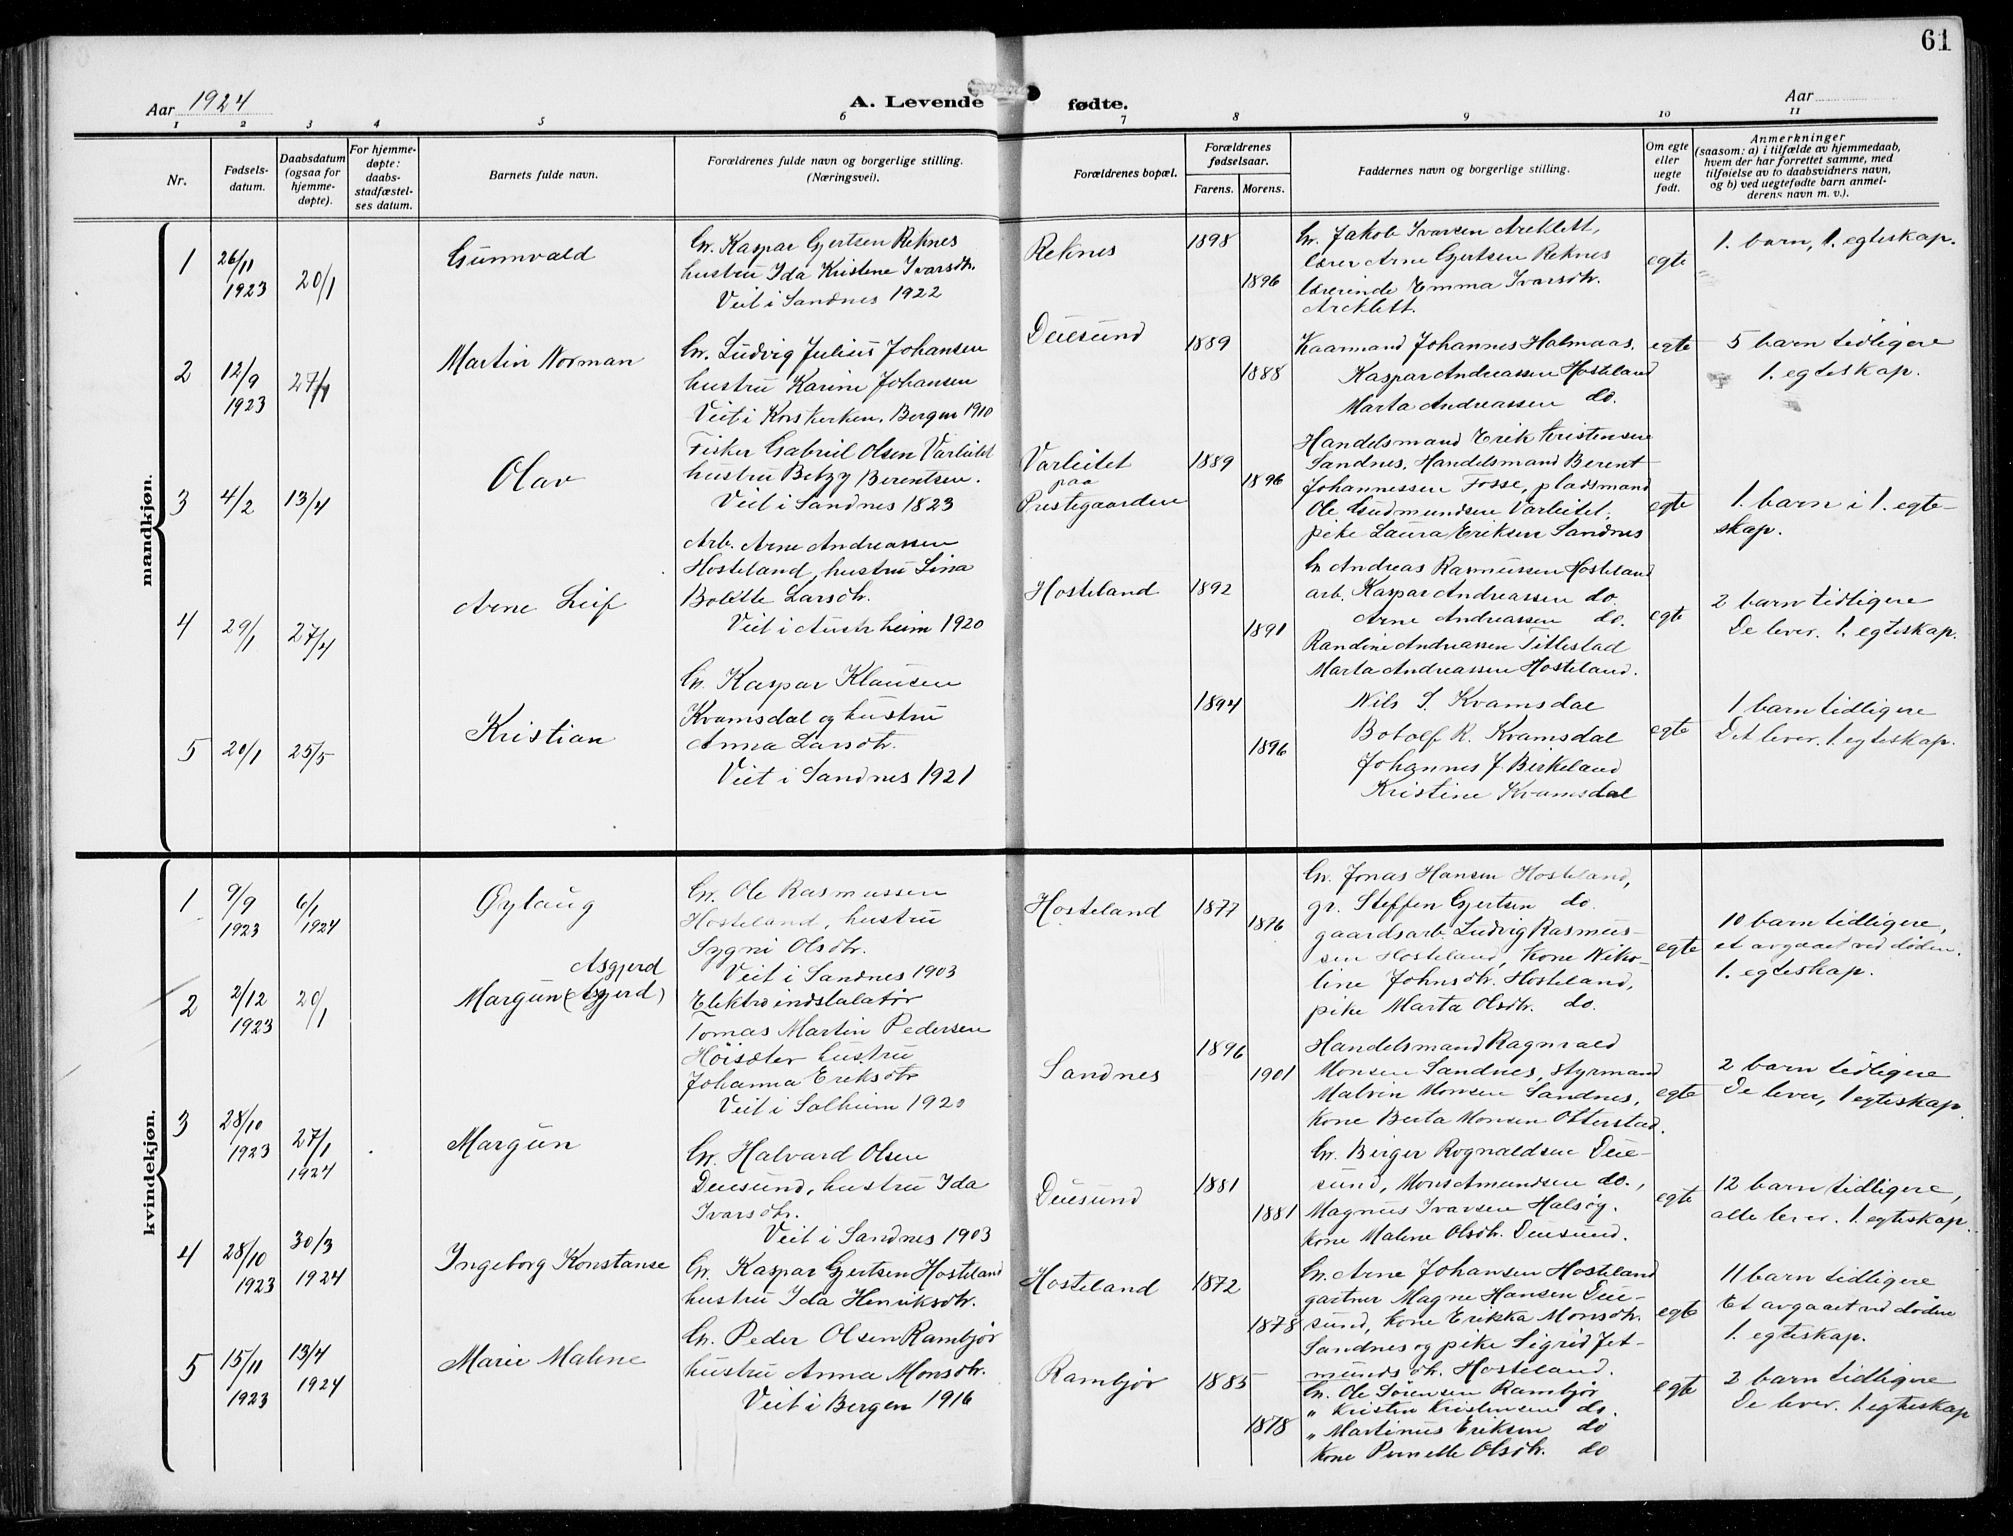 61
Aar 1924
A. Levende fødte.
Aar
1 2 3 4 5 6 7 8 9 10 11
Nr.
Fødsels-
datum.
Daabsdatum
(ogsaa for
hjemme-
døpte).
For hjemme-
døpte:
daabs-
stadfæstel-
ses datum.
Barnets fulde navn.
Forældrenes fulde navn og borgerlige stilling.
(Næringsvei).
Forældrenes bopæl.
Forældrenes
fødselsaar.
Farens. Morens.
Faddernes navn og borgerlige stilling.
Om egte
eller
uegte
født.
Anmerkninger
(saasom: a) i tilfælde av hjemmedaab,
hvem der har forrettet samme, med
tilføielse av to daabsvidners navn,
og b) ved uegtefødte barn anmel-
derens navn m. v.).
mandkjøn.
1
26/11
1923
20/1
Gunnvald
Gr. Kaspar Gjertsen Reknes
hustru Ida Kristene Ivarsdtr.
Viet i Sandnes 1922
Reknes
1898
1896
Gr. Jakob Ivarsen Areklett,
lærer Arne Gjertsen Reknes
lærerinde Emma Ivarsdtr.
Areklett.
egte
1. barn, 1. egteskap.
2
12/9
1923
27/1
Martin Norman
Gr. Ludvig Julius Johansen
hustru Karine Johansen
Viet i Korskerken, Bergen 1910
Duesund
1889
1888
Kaarmand Johannes Halmaas.
Kaspar Andreassen Hosteland
Marta Andreassen do.
egte
5 barn tidligere
1. egteskap.
3
4/2
13/4
Olav
Fisker Gabriel Olsen Varleitet
hustru Betzy Berentsen.
Viet i Sandnes 1823
Varleitet
paa
Prestegaarden
1889
1896
Handelsmand Erik Kristensen
Sandnes, Handelsmand Berent
Johannessen Fosse, pladsmand
Ole Gudmundsen Varleitet.
pike Laura Eriksen Sandnes
egte
1. barn i 1. egte-
skap.
4
29/1
27/4
Arne Leif
Arb. Arne Andreassen
Hosteland, hustru Lina
Bolette Larsdtr.
Viet i Austrheim 1920
Hosteland
1892
1891
Gr Andreas Rasmussen Hosteland
arb. Kaspar Andreassen do.
Arne Andreassen do.
Randine Andreassen Tillestad
Marta Andreassen Hosteland.
egte
2 barn tidligere
De lever. 1. egteskap.
5
20/1
25/5
Kristian
Gr. Kaspar Klausen
Kvamsdal og hustru
Anna Larsdtr.
Viet i Sandnes 1921
1894
1896
Nils S. Kvamsdal
Botolf R. Kvamsdal
Johannes J. Birkeland
Kristine Kvamsdal
egte
1 barn tidligere
Det lever. 1. egteskap.
kvindekjøn.
1
9/9
1923
6/1
1924
Øylaug
Gr. Ole Rasmussen
Hosteland, hustru
Sygni Olsdtr.
Viet i Sandnes 1903
Hosteland
1877
1876
Gr. Jonas Hansen Hosteland,
gr. Steffen Gjertsen do.
gaardsarb. Ludvig Rasmus-
sen Hosteland, Kone Niko-
line Johnsdtr. Hosteland,
pike Marta Olsdtr. do.
egte
10 barn tidligere,
et avgaaet ved døden.
1. egteskap.
2
2/12
1923
20/1
Asgjerd
Margun
Elektroinstalatør
Tomas Martin Pedersen
Høisæter hustru
Johanna Eriksdtr
Viet i Solheim 1920
Sandnes
1896
1901
Handelsmand Ragnvald
Monsen Sandnes, styrmand
Malvin Monsen Sandnes,
Kone Berta Monsen Otterstad.
egte
2 barn tidligere
De lever, 1 egteskap.
3
28/10
1923
27/1
1924
Margun
Gr. Halvard Olsen
Duesund, hustru Ida
Ivarsdtr.
Viet i Sandnes 1903
Duesund
1881
1881
Gr. Birger Rognaldsen Due-
sund, Mons Amundsen do.,
Magnus Ivarsen Halsøy.
Kone Malene Olsdtr. Duesund.
egte
12 barn tidligere,
alle lever. 1. egteskap.
4
28/10
1923
30/3
1924
Ingeborg Konstanse
Gr. Kaspar Gjertsen Hosteland
hustru Ida Henriksdtr.
Hosteland
1872
1878
Gr. Arne Johansen Hosteland
gartner Magne Hansen Due-
sund, Kone Erikka Monsdtr.
Sandnes og pike Sigrid Jet-
mundsdtr. Hosteland.
egte
11 barn tidligere
Et avgaaet ved døden
1. egteskap.
5
15/11
1923
13/4
1924
Marie Malene
Gr. Peder Olsen Rambjør
hustru Anna Monsdtr.
Viet i Bergen 1916
Rambjør
1885
1878
Gr. Ole Sørensen Rambjør
" Kristen Kristensen do.
" Martinus Eriksen do
Kone Pernelle Olsdtr. do
egte
2 barn tidligere
De lever. 1. egteskap